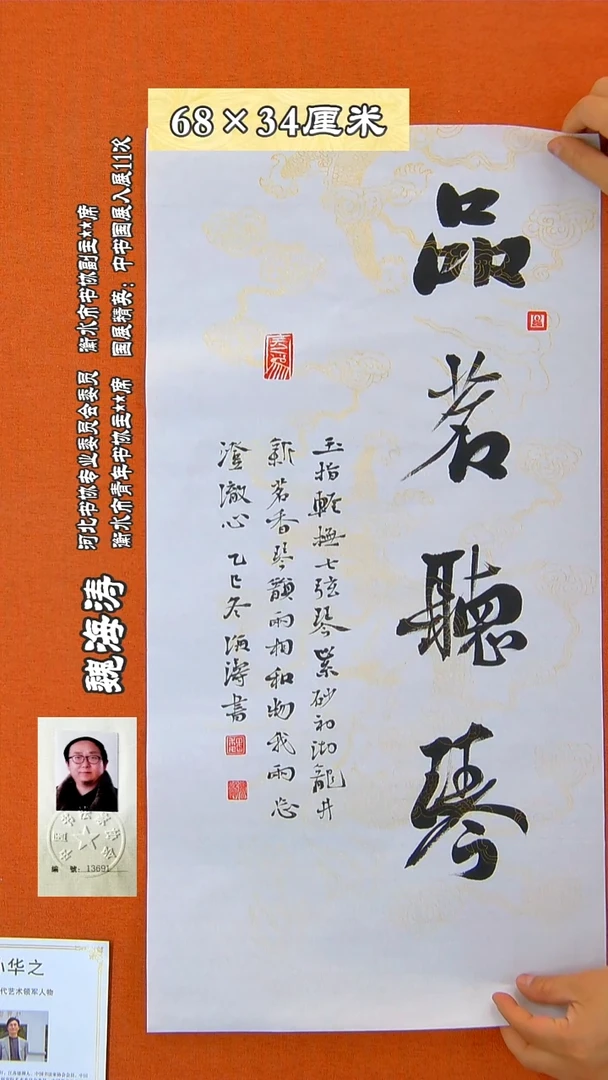 68×34厘米
品茗聽琴
玉指輕撫七弦琴紫砂初沏龍井
新茗香琴韻兩相和物我兩忘
澄澈心 乙巳冬海濤書
河北书协专业委员会委员 衡水市书协副主**席
衡水市青年书协主**席 国展精英：中书国展入展11次
魏海涛
編 號：13691
小华之
代艺术领军人物